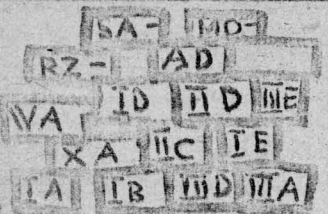 DA- MO-
RZ- AD
ID IID IIIE
VA
XA IIC IE
IA IB IIID IIIA